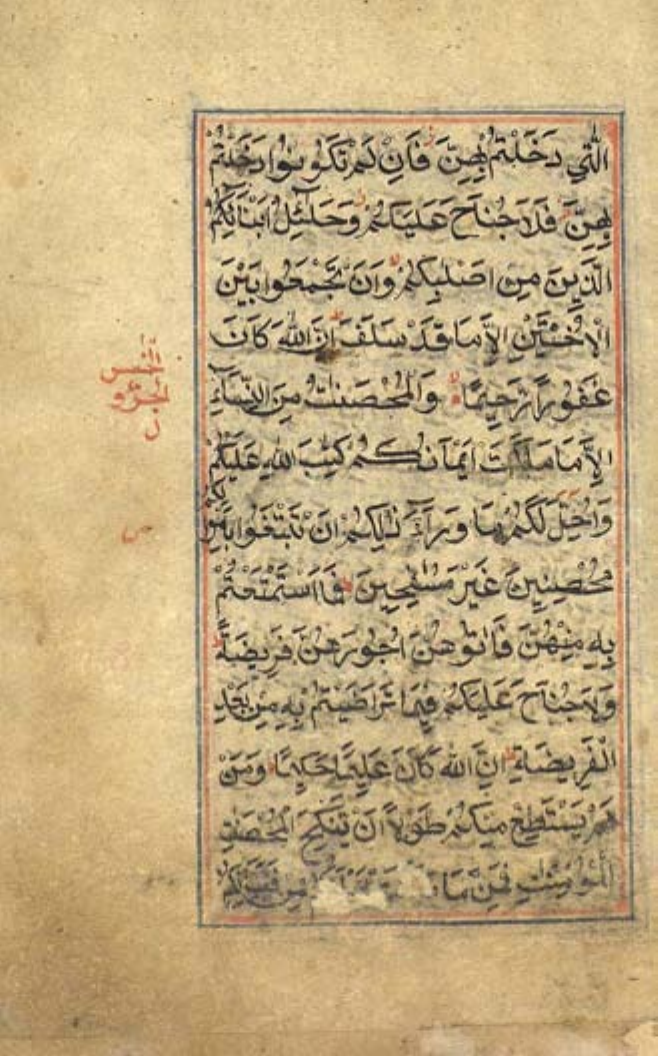 الّٰتِي دَخَلْتُمْ بِهِنَّ فَاِنْ لَمْ تَكُونُوا دَخَلْتُمْ
بِهِنَّ فَلَا جُنَاحَ عَلَيْكُمْ وَحَلَٓئِلُ اَبْنَٓائِكُمُ
الَّذِينَ مِنْ اَصْلٰبِكُمْ وَاَنْ تَجْمَعُوا بَيْنَ
الْاُخْتَيْنِ اِلَّا مَا قَدْ سَلَفَ اِنَّ اللّٰهَ كَانَ
غَفُورًا رَحِيمًا وَالْمُحْصَنٰتُ مِنَ النِّسَٓاءِ
اِلَّا مَا مَلَكَتْ اَيْمَانُكُمْ كِتٰبَ اللّٰهِ عَلَيْكُمْ
وَاُحِلَّ لَكُمْ مَا وَرَٓاءَ ذٰلِكُمْ اَنْ تَبْتَغُوا بِاَمْوَالِكُمْ
مُحْصِنِينَ غَيْرَ مُسٰفِحِينَ فَمَا اسْتَمْتَعْتُمْ
بِهِ مِنْهُنَّ فَاٰتُوهُنَّ اُجُورَهُنَّ فَرِيضَةً
وَلَا جُنَاحَ عَلَيْكُمْ فِيمَا تَرَاضَيْتُمْ بِهِ مِنْ بَعْدِ
الْفَرِيضَةِ اِنَّ اللّٰهَ كَانَ عَلِيمًا حَكِيمًا وَمَنْ
لَمْ يَسْتَطِعْ مِنْكُمْ طَوْلًا اَنْ يَنْكِحَ الْمُحْصَنٰتِ
الْمُؤْمِنٰتِ فَمِنْ مَا مِنْ فَتَيٰتِكُمُ
الجزؤ